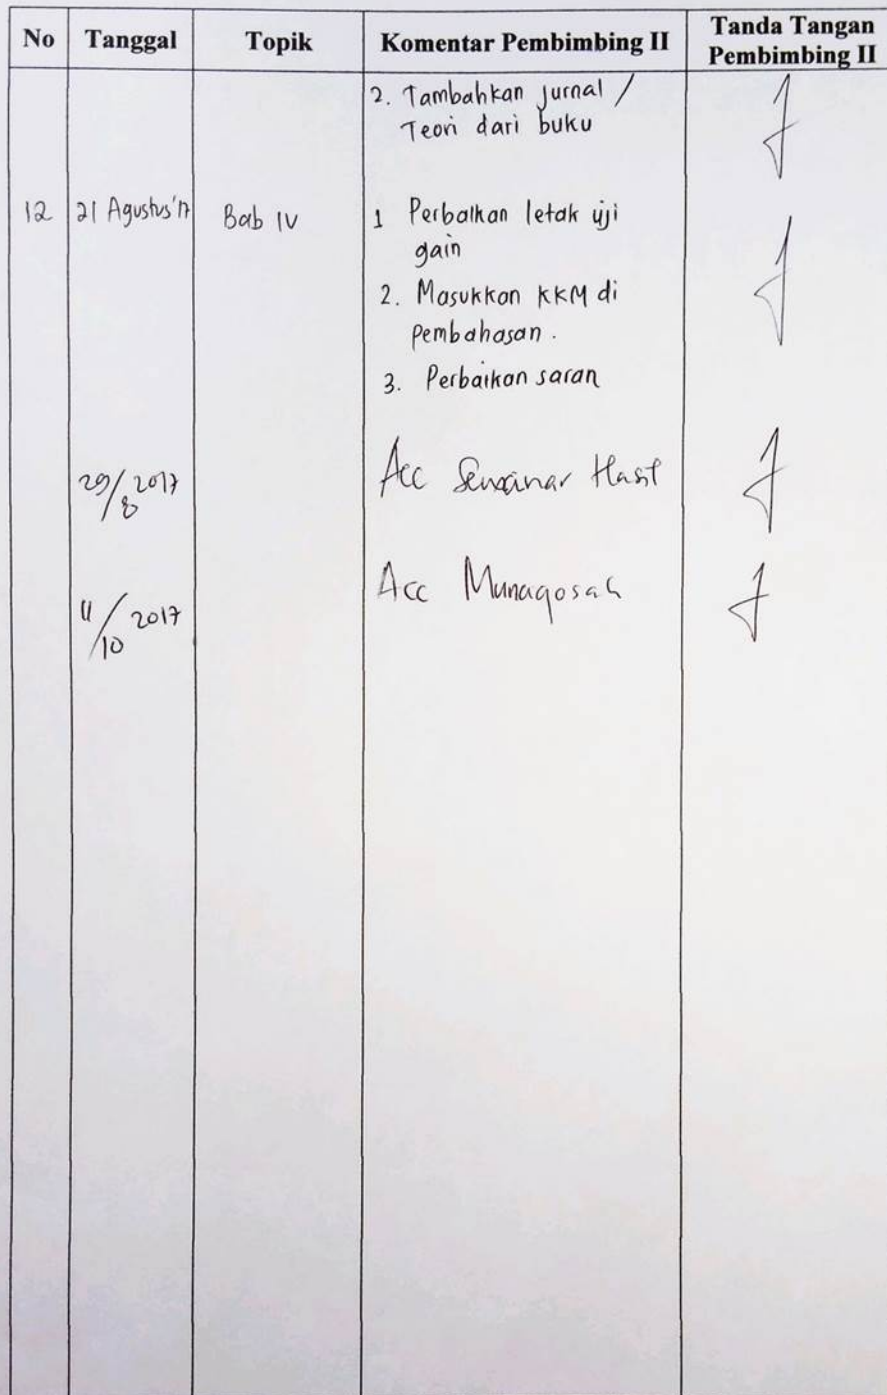 No Tanggal Topik Komentar Pembimbing II Tanda Tangan Pembimbing II
2. Tambahkan jurnal /
Teori dari buku
12 21 Agustus'17 Bab IV 1 Perbaikan letak uji
gain
2. Masukkan KKM di
pembahasan.
3. Perbaikan saran
29/8 2017 Acc Seminar Hasil
11/10 2017 Acc Munaqosah